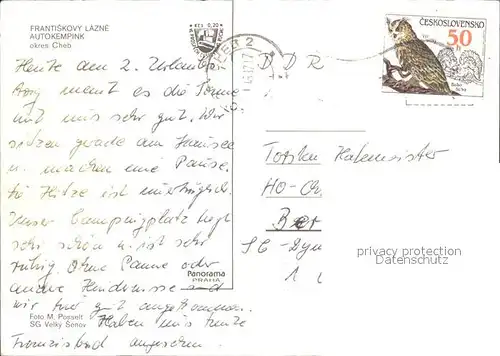 FRANTIŠKOVY LÁZNĚ
AUTOKEMPINK
okres Cheb
Kčs 0,20
CHEB 2
DDR
ČESKOSLOVENSKO
50
Heute am 2. Urlaubs-
tag meint es die Sonne
mit uns sehr gut. Wir
sitzen gerade am
u. machen eine Pause.
die Hitze ist unerträglich.
Unser Campingplatz liegt
sehr schön u. ist sehr
ruhig. Ohne Panne oder
andere Hindernisse sind
wir hier gut angekommen.
Haben uns heute
Franzisbad angesehen.
Panorama
PRAHA
Foto M. Posselt
SG Velký Šenov
HO-
Ber
privacy protection
Datenschutz